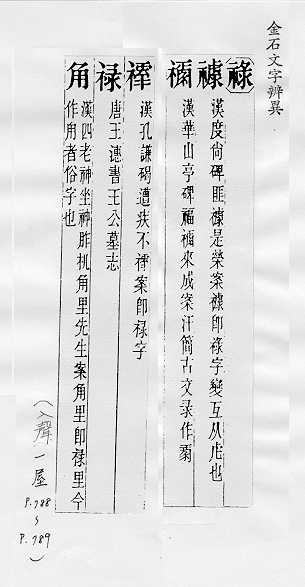 金石文字辨異
祿 漢度尚碑匪祿是榮案祿即祿字變互从虍也
漢華山亭碑福禄來成案汗簡古文录作
禪 漢孔謙碣遭疾不禄案即禄字
禄 唐王㥁書王公墓志
角 漢四老神坐神胙机角里先生案角里即禄里今
作用者俗字也
(入聲一屋
P.788
~
P.789)